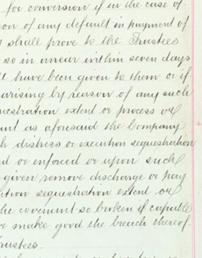 for conversion if in the case of
on of any default in payment of
shall prove to the Trustees
so in arrear within seven days
ll have been given to them or if
arising by reason of any such
questration extent or process or
unt as aforesaid the Company
ch distress or execution sequestration
ed or enforced or upon such
given remove discharge or pay
ution sequestration extent or
the covenant so broken if capable
make good the breach thereof
Trustees.